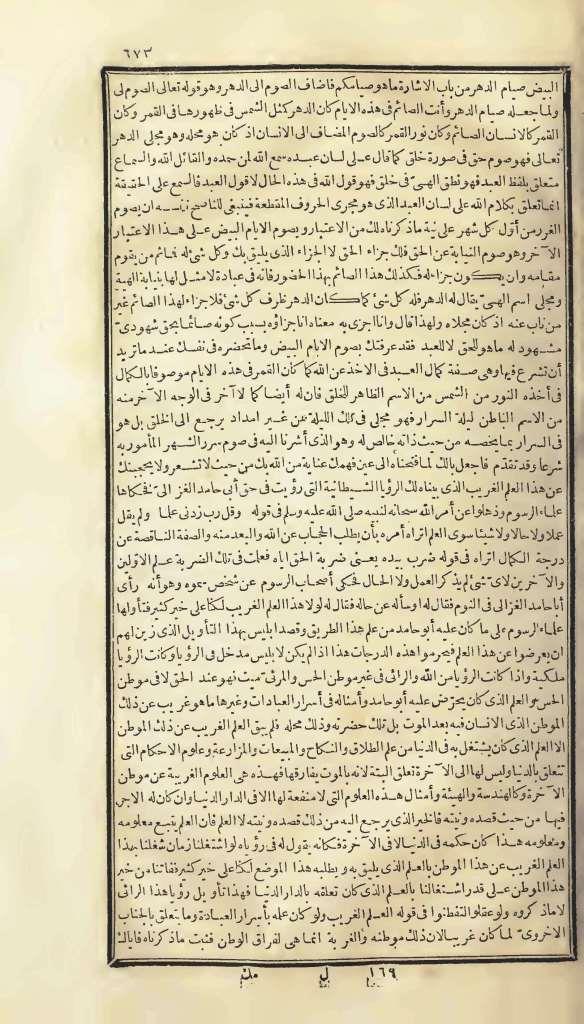 ٦٧٣
البيض صيام الدهر من باب الاشارة ما هو صيامكم فاضاف الصوم الى الدهر وهو قوله تعالى الصوم لى
ولما جعله صيام الدهر وأنت الصائم فى هذه الايام كان الدهر كمثل الشمس فى ظهورها فى القمر وكان
القمر كالانسان الصائم وكان نور القمر كالصوم المضاف الى الانسان اذ كان هو محله وهو مجلى الدهر
تعالى فهو صوم حق فى صورة خلق كما قال على لسان عبده سمع الله لمن حمده والقائل الله والسماع
متعلق بلفظ العبد فهو نطق الهىّ فى خلق فهو قول الله فى هذه الحال لا قول العبد فالسمع على الحقيقة
انما تعلق بكلام الله على لسان العبد الذى هو مجرى الحروف المقطعة فينبغى للناصح نفسه ان يصوم
الغرر من أوّل كل شهر على نية ما ذكرناه لك من الاعتبار ويصوم الايام البيض على هذا الاعتبار
الآخر وهو صوم النيابة عن الحق فلك جزاء الحق لا الجزاء الذى يليق بك وكل شئ له فما ثم من يقوم
مقامه وان يكون جزاء له فكذلك هذا الصائم بهذا الحضور فانه فى عبادة لا مثل لها بنيابة الهية
ومجلى اسم الهىّ يقال له الدهر فله كل شئ كما كان الدهر ظرف كل شئ فلا جزاء لهذا الصائم غير
من ناب عنه اذ كان مجلاه ولهذا قال وانا اجزى به معناه انا جزاؤه بسبب كونه صائما بحق شهودىّ
مشهود له ما هو للحق لا للعبد فقد عرفتك بصوم الايام البيض وما تحضره فى نفسك عند ما تريد
أن تشرع فيها وهى صفة كمال العبد فى الاخذ عن الله كما كان القمر فى هذه الايام موصوفا بالكمال
فى أخذه النور من الشمس من الاسم الظاهر للخلق فان له أيضا كمالا آخر فى الوجه الآخر منه
من الاسم الباطن ليلة السرار فهو مجلى فى تلك الليلة من غير امداد يرجع الى الخلق بل هو
فى السرار بما يخصه من حيث ذاته خالص له وهو الذى أشرنا اليه فى صوم سرر الشهر المأمور به
شرعا وقد تقدّم فاجعل بالك لما فتحناه الى عين فهمك عناية من الله بك من حيث لا تشعر ولا يحجبنك
عن هذا العلم الغريب الذى بيناه لك الرؤيا الشيطانية التى رؤيت فى حق أبى حامد الغزالىّ فحكاها
علماء الرسوم وذهلوا عن أمر الله سبحانه لنبيه صلى الله عليه وسلم فى قوله وقل رب زدنى علما ولم يقل
عملا ولا حالا ولا شيئا سوى العلم اتراه أمره بأن يطلب الحجاب عن الله والبعد منه والصفة الناقصة عن
درجة الكمال اتراه فى قوله ضرب بيده يعنى ضربة الحق اياه فعلمت فى تلك الضربة علم الاوّلين
والآخرين لاى شئ لم يذكر العمل ولا الحال فحكى أصحاب الرسوم عن شخص سموه وهو أنه رأى
أبا حامد الغزالى فى النوم فقال له أو سأله عن حاله فقال له لولا هذا العلم الغريب لكنا على خير كثير فتأولها
علماء الرسوم على ما كان عليه أبو حامد من علم هذا الطريق وقصد ابليس بهذا التأويل الذى زين لهم
ان يعرضوا عن هذا العلم فيحرموا هذه الدرجات هذا اذا لم يكن لابليس مدخل فى الرؤيا وكانت الرؤيا
ملكية واذا كانت الرؤيا من الله والرائى فى غير موطن الحس والمرئىّ ميت فهو عند الحق لا فى موطن
الحس والعلم الذى كان يحرّض عليه أبو حامد وأمثاله فى أسرار العبادات وغيرها ما هو غريب عن ذلك
الموطن الذى الانسان فيه بعد الموت بل تلك حضرته وذلك محله فلم يبق العلم الغريب عن ذلك الموطن
الا العلم الذى كان يشتغل به فى الدنيا من علم الطلاق والنكاح والمبيعات والمزارعة وعلوم الاحكام التى
تتعلق بالدنيا وليس لها الى الآخرة تعلق البتة لانه بالموت يفارقها فهذه هى العلوم الغريبة عن موطن
الآخرة وكالهندسة والهيئة وأمثال هذه العلوم التى لا منفعة لها الا فى الدار الدنيا وان كان له الاجر
فيها من حيث قصده ونيته فالخير الذى يرجع اليه من ذلك قصده ونيته لا العلم فان العلم يتبع معلومه
ومعلومه هذا كان حكمه فى الدنيا لا فى الآخرة فكانه يقول له فى رؤياه لو اشتغلنا زمان شغلنا بهذا
العلم الغريب عن هذا الموطن بالعلم الذى يليق به ويطلبه هذا الموضع لكنا على خير كثير ففاتنا من خير
هذا الموطن على قدر اشتغالنا بالعلم الذى كان تعلقه بالدار الدنيا فهذا تأويل رؤيا هذا الرائى
لا ما ذكروه ولو عقلوا لتفطنوا فى قوله العلم الغريب ولو كان علمه بأسرار العبادة وما يتعلق بالجناب
الاخروىّ لما كان غريبا لان ذلك موطنه والغربة انما هى لفراق الوطن فثبت ما ذكرناه فاياك
١٦٩ ل مك